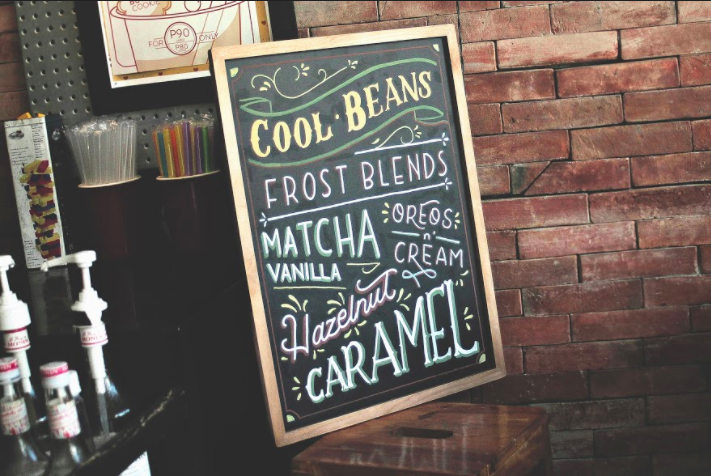 COOKIE
P90
FOR
ONLY
P80
COOL · BEANS
FROST BLENDS
MATCHA
VANILLA
OREOS
n'
CREAM
Hazelnut
CARAMEL